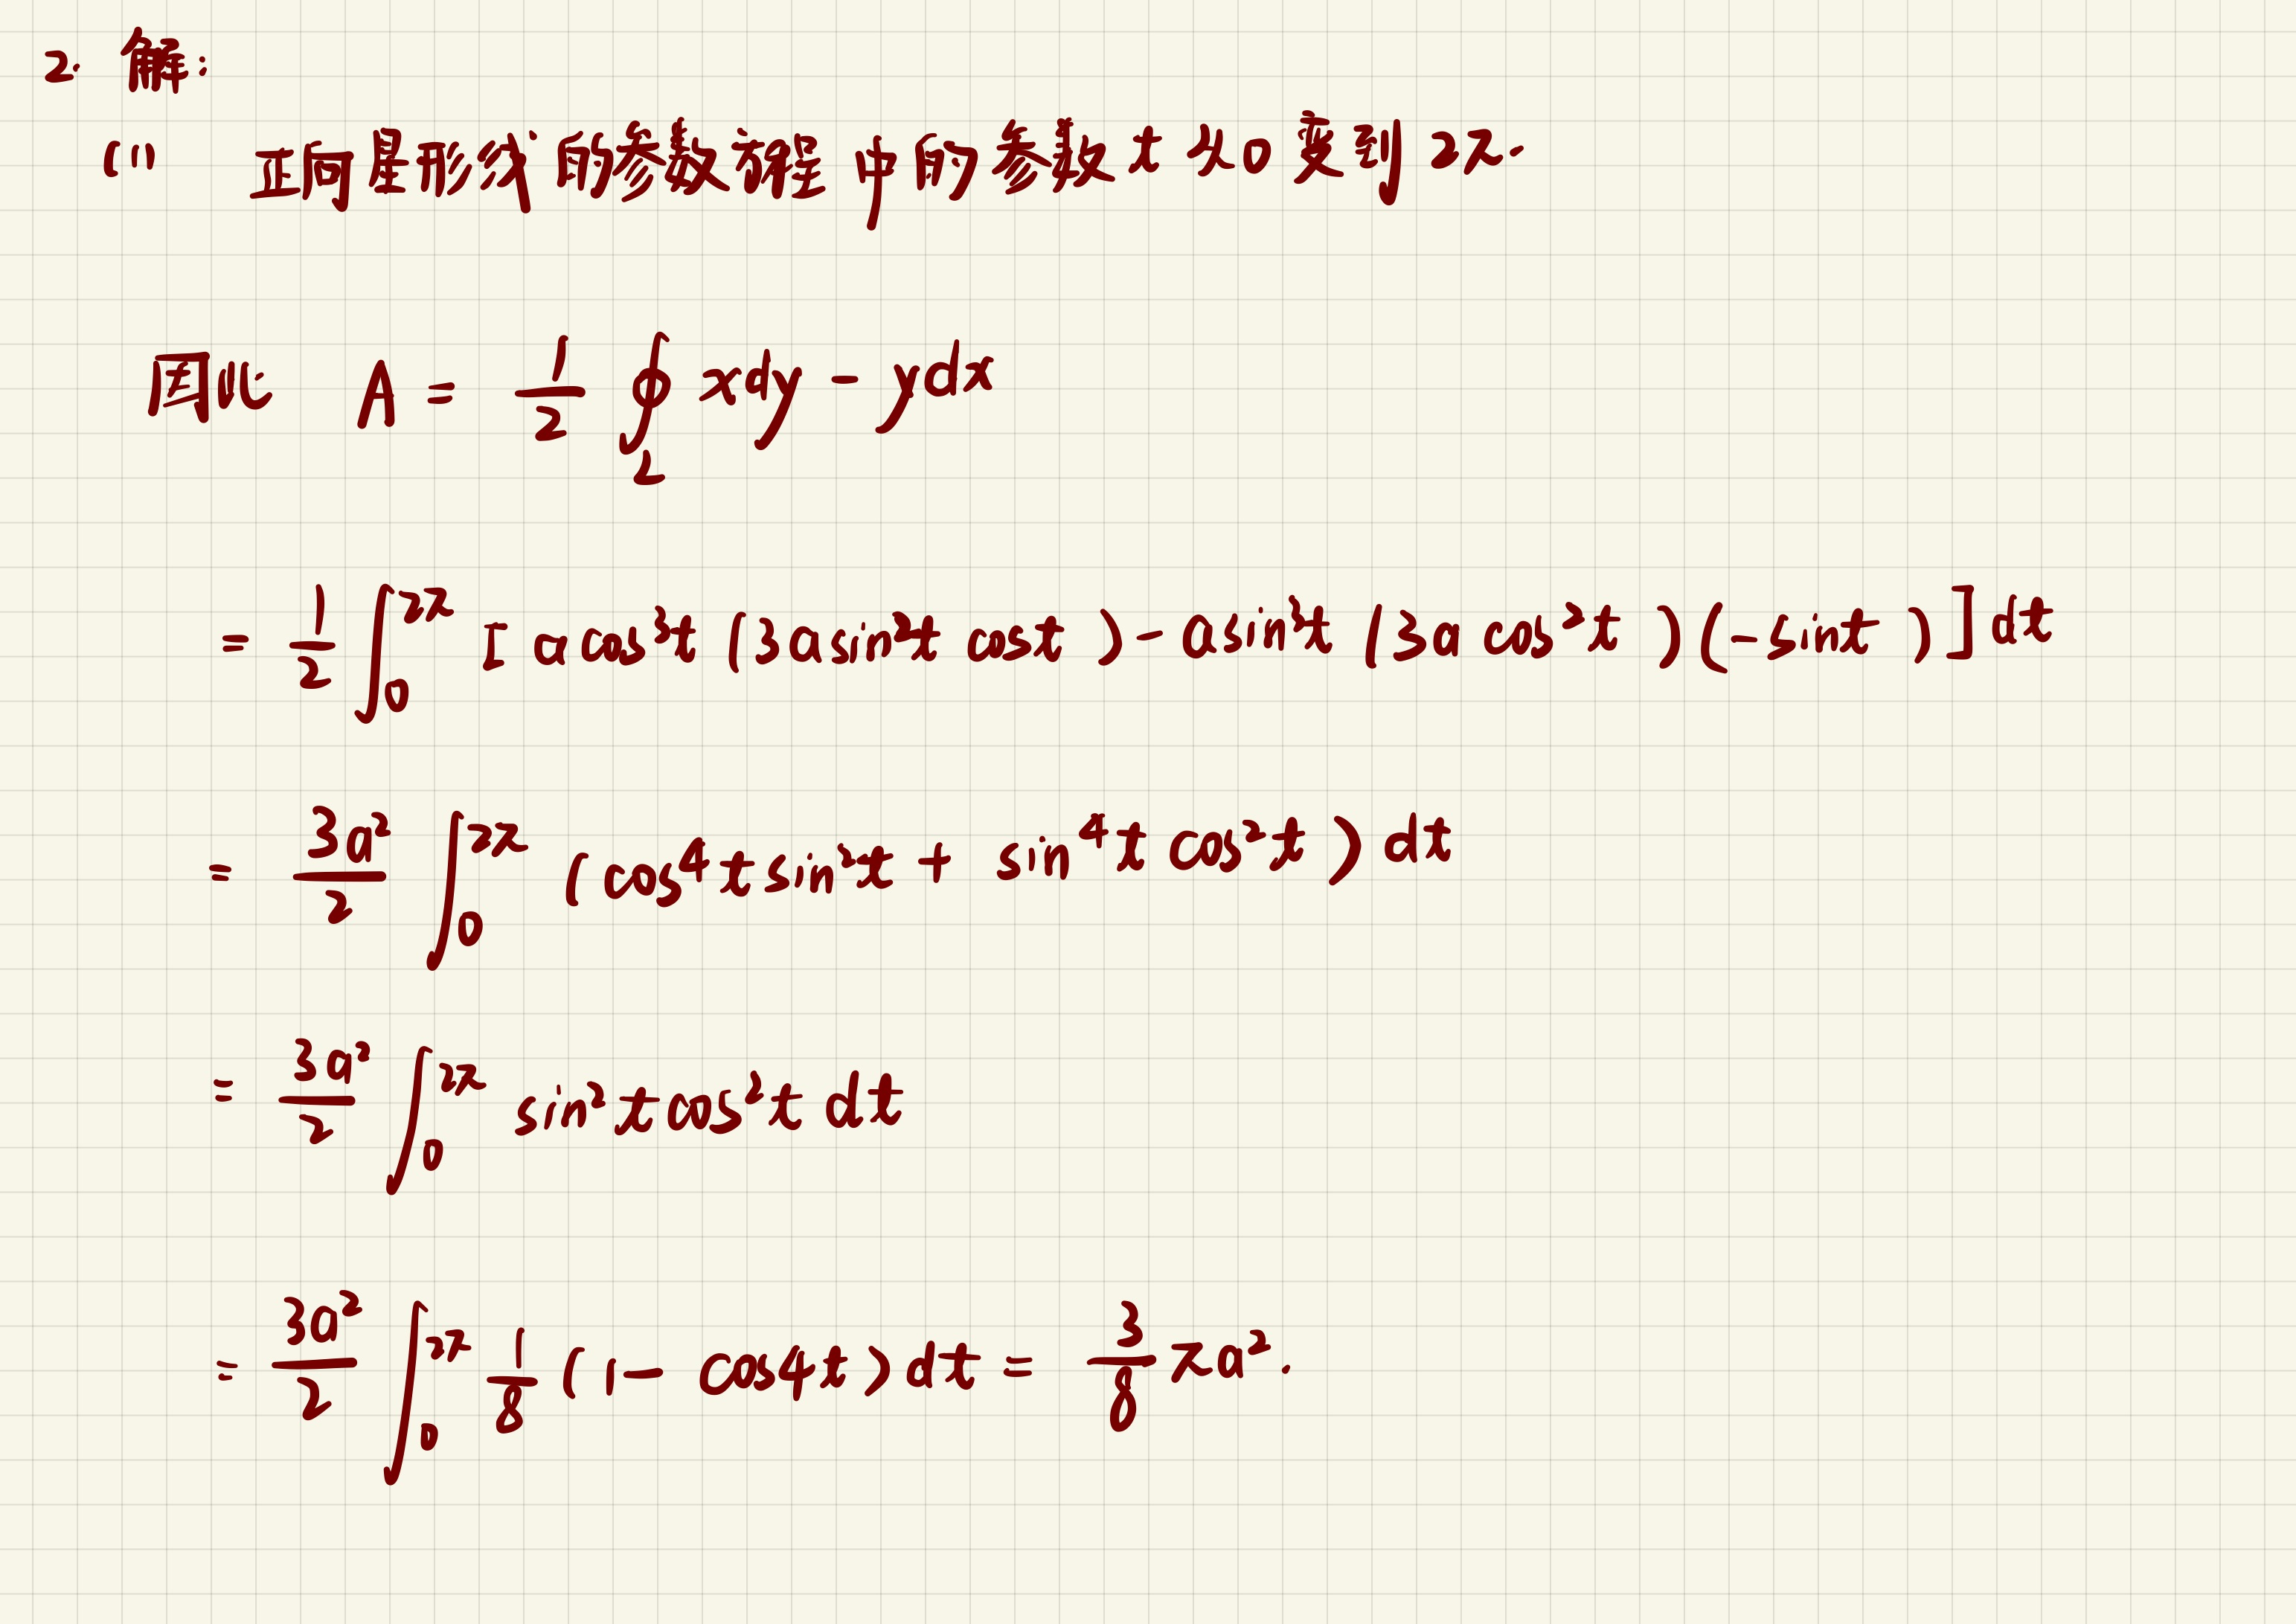 2. 解:
(1) 正向星形线的参数方程中的参数t从0变到2π.
因此 A = \frac{1}{2} \oint_L xdy - ydx
= \frac{1}{2} \int_0^{2π} [a cos³t (3a sin²t cost) - a sin³t (3a cos²t)(-sint)] dt
= \frac{3a²}{2} \int_0^{2π} (cos⁴t sin²t + sin⁴t cos²t) dt
= \frac{3a²}{2} \int_0^{2π} sin²t cos²t dt
= \frac{3a²}{2} \int_0^{2π} \frac{1}{8} (1 - cos4t) dt = \frac{3}{8} πa².